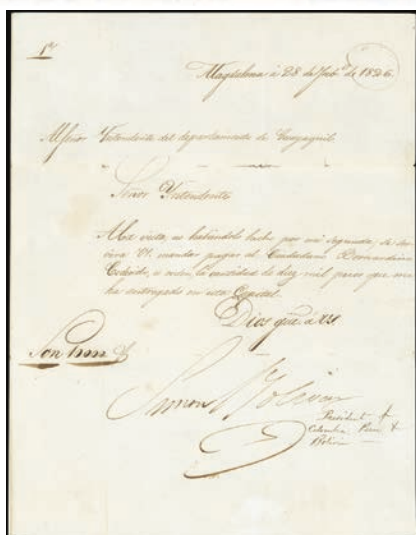 1ª
Magdalena á 28 de Feb.º de 1826.
Al Señor Intendente del departamento de Guayaquil.
Señor Intendente
A la vista, no habiéndolo hecho por mi segunda, se ser-
virá VS. mandar pagar al Ciudadano Bernardino
Codecido, u orden, la cantidad de diez mil pesos que me
ha entregado en esta Capital.
Dios gue. á VS.
Son
Simon Bolivar
President of
Colombia Peru &
Bolivia